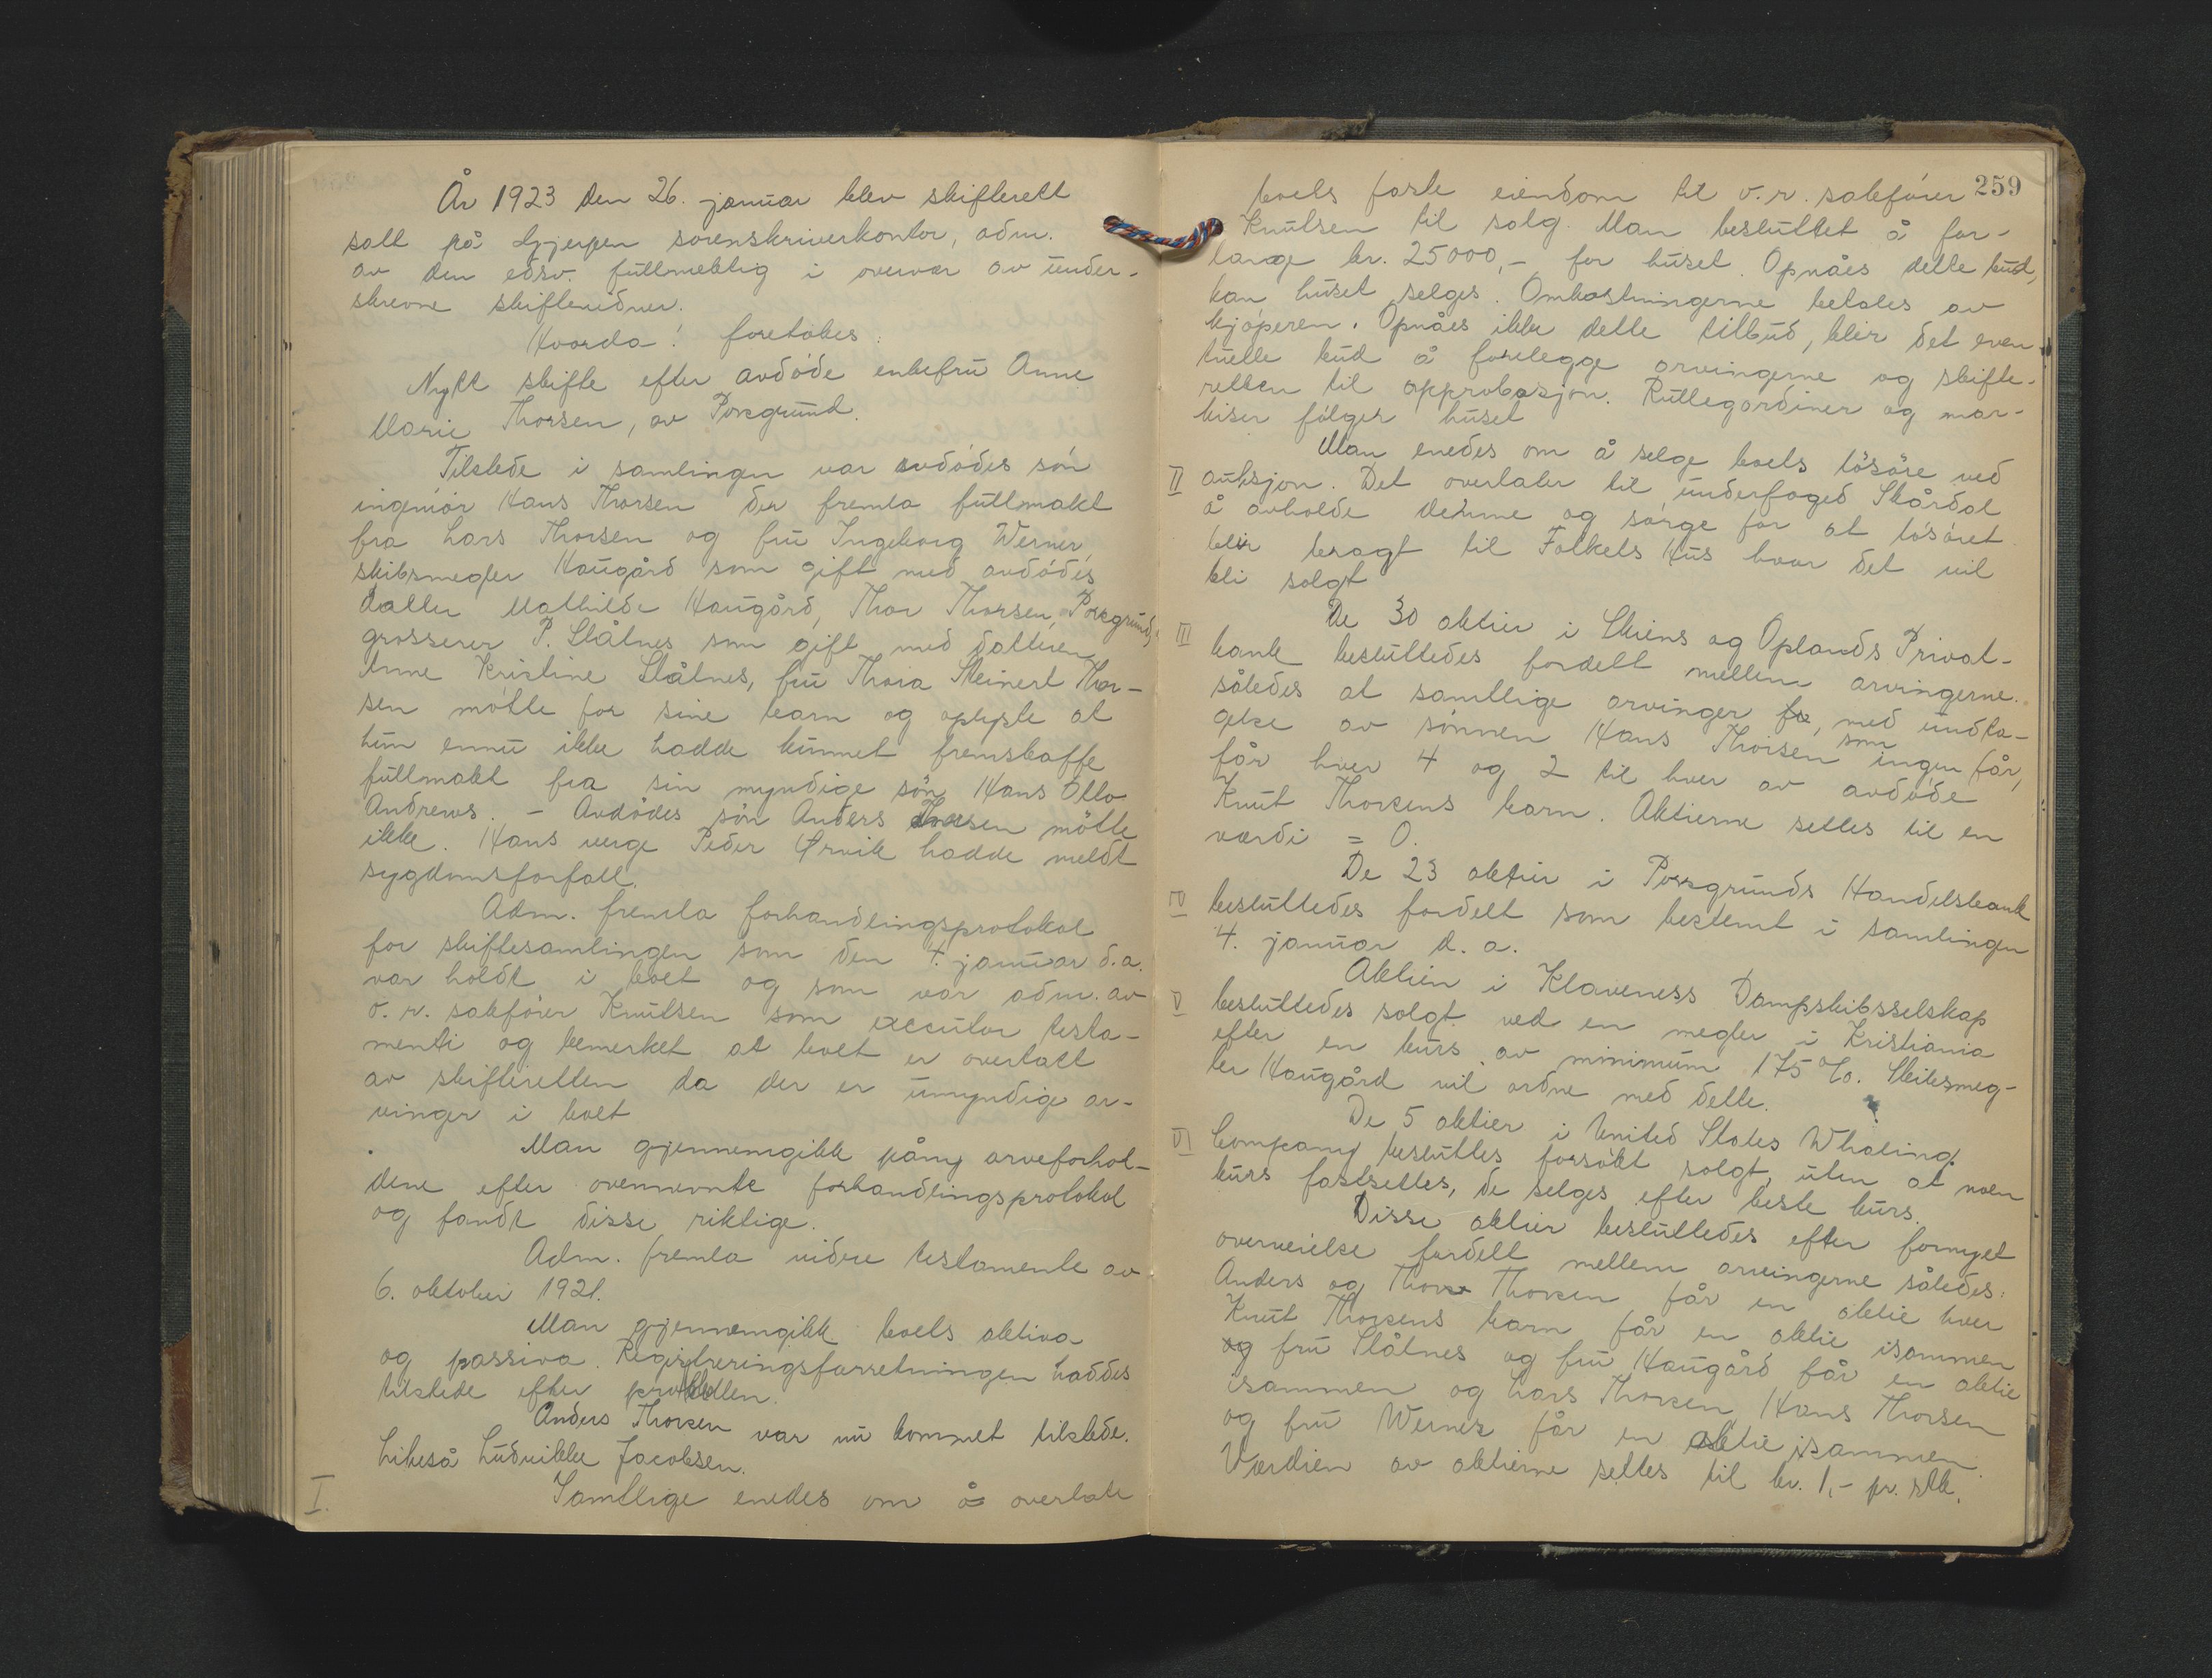 År 1923 den 26. januar blev skifterett
satt på Gjerpen sorenskriverkontor, adm.
av den edsv. fullmektig i overvær av under-
skrevne skiftevidner.
Hvorda: foretokes:
Nytt skifte efter avdøde enkefru Anne
Marie Thorsen, av Porsgrund.
Tilstede i samlingen var avdødes søn
ingeniør Hans Thorsen der fremla fullmakt
fra Lars Thorsen og fru Ingeborg Werner,
skibsmegler Haugård som gift med avdødes
datter Mathilde Haugård, Thor Thorsen, Porsgrund,
grosserer P. Slåtnes som gift med datteren
Anne Kristine Slåtnes, fru Thora Steinert Thor-
sen møtte for sine barn og oplyste at
hun ennu ikke hadde kunnet fremskaffe
fullmakt fra sin myndige søn Hans Otto
Andrews. - Avdødes søn Anders Thorsen møtte
ikke. Hans verge Peder Ørvik hadde meldt
sygdomsforfall.
Adm. fremla forhandlingsprotokol
for skiftesamlingen som den 4. januar d.a.
var holdt i boet og som var adm. av
o.r. sakfører Knutsen som executor testa-
menti og bemerket at boet er overtatt
av skifteretten da der er umyndige ar-
vinger i boet
Man gjennemgikk påny arveforhol-
dene efter ovennevnte forhandlingsprotokol
og fandt disse riktige.
Adm. fremla videre testamente av
6. oktober 1921.
Man gjennemgikk boets aktiva
og passiva. Registreringsforretningen haddes
tilstede efter
Anders Thorsen var nu kommet tilstede.
Likeså Ludvikke Jacobsen.
I. Samtlige enedes om å overlate
259
boets faste eiendom til o.r. sakfører
Knutsen til salg. Man besluttet å for-
lange kr. 25000,- for huset. Opnåes dette bud,
kan huset selges. Omkostningerne betales av
kjøperen. Opnåes ikke dette tilbud, blir det even-
tuelle bud å forelegge arvingerne og skifte-
retten til approbasjon. Rullegardiner og mar-
kiser følger huset
Man enedes om å selge boets løsøre ved
II auksjon. Det overlater til underfoged Skårdal
å avholde denne og sørge for at løsøret
blir bragt til Folkets Hus hvor det vil
bli solgt
De 30 aktier i Skiens og Oplands Privat-
III bank besluttedes fordelt mellem arvingerne.
således at samtlige arvinger får, med undta-
gelse av sønnen Hans Thorsen som ingen får,
får hver 4 og 2 til hver av avdøde
Knut Thorsens barn. Aktierne settes til en
værdi = 0.
De 23 aktier i Porsgrunds Handelsbank
IV besluttedes fordelt som bestemt i samlingen
4. januar d.a.
Aktien i Klaveness Dampskibsselskap
V besluttedes solgt ved en megler i Kristiania
efter en kurs av minimum 175 %. Skibsmeg-
ler Haugård vil ordne med dette.
De 5 aktier i United States Whaling
VI Company besluttes forsøkt solgt, uten at noen
kurs fastsettes, de selges efter beste kurs.
Disse aktier besluttedes efter fornyet
overveielse fordelt mellem arvingerne således:
Anders og Thor Thorsen får en aktie hver
Knut Thorsens barn får en aktie isammen
og fru Slåtnes og fru Haugård får en aktie
isammen og Lars Thorsen, Hans Thorsen
og fru Werner får en aktie isammen.
Værdien av aktierne settes til kr. 1,- pr. stk.